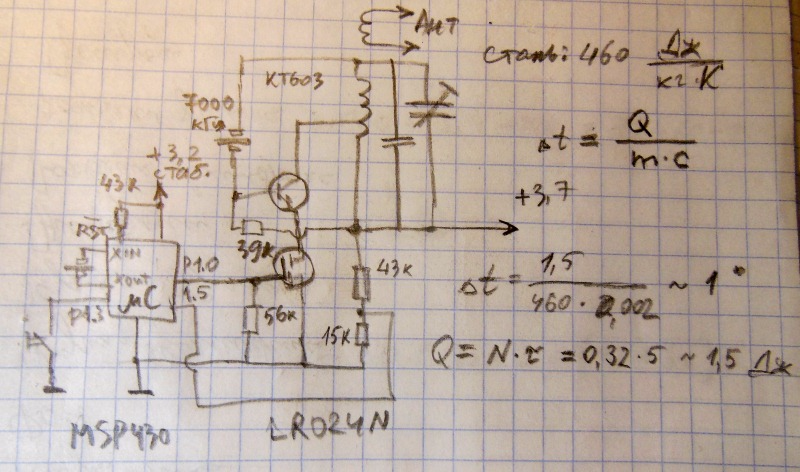 Ант
сталь: 460 Дж/кг·К
КТ603
7000
кГц
Δt = Q/m·c
+3,2
стаб.
43к
+3,7
RST
XIN
39к
P1.0
43к
Xout
μC
1.5
Δt = 1,5/460·0,002 ~ 1°
P1.3
56к
15к
Q = N·τ = 0,32·5 ~ 1,5 Дж
MSP430
LR024N